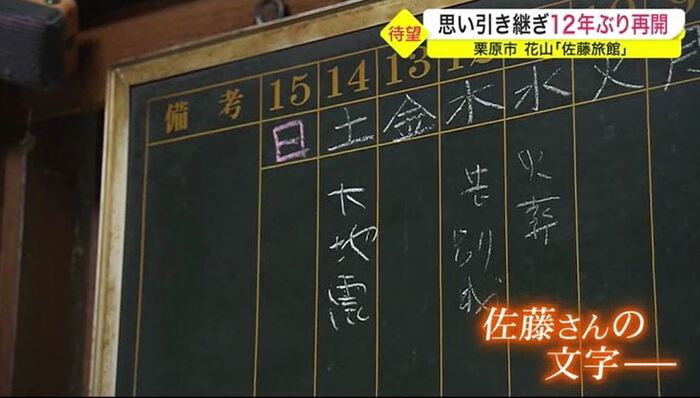 待望
思い引き継ぎ12年ぶり再開
栗原市 花山「佐藤旅館」
備考
15
14
13
日
土
金
木
水
火
月
大地震
告別式
火葬
佐藤さんの
文字―